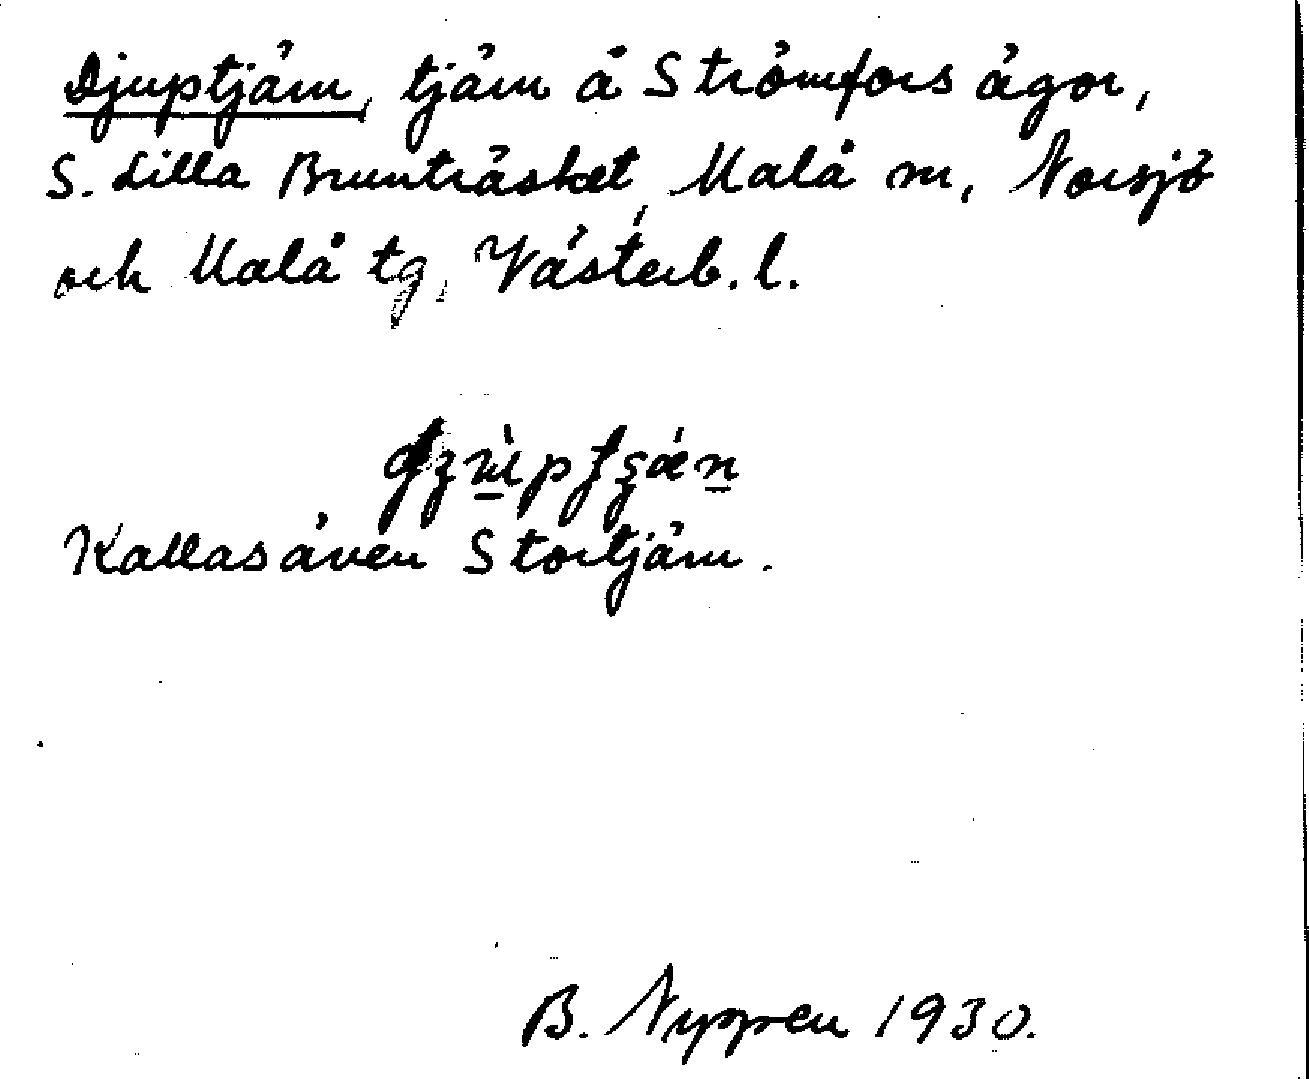 Djuptjärn, tjärn å Strömfors ägor,
S. Lilla Brunträsket, Malå sn, Norsjö
och Malå tg, Västerb. l.
Kallas även Stortjärn.
B. Nygren 1930.